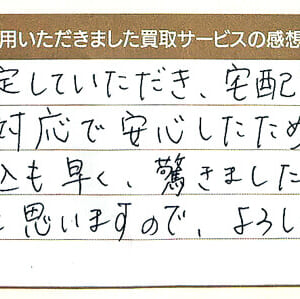 用いただきました買取サービスの感想
定していただき、宅配
対応で安心したため
込も早く、驚きました
と思いますので、よろし